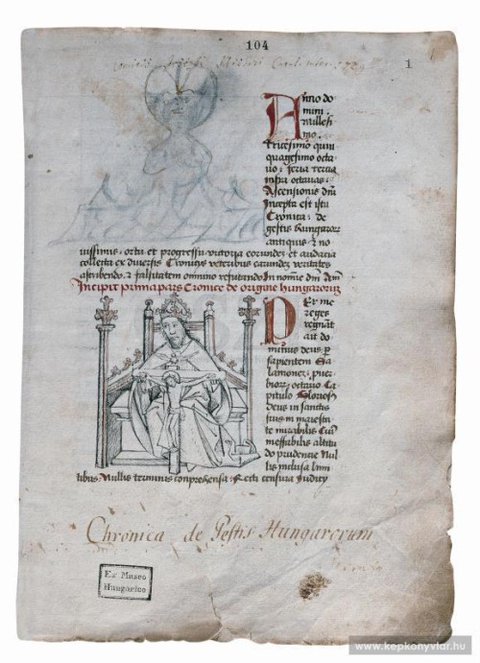 104
1
Anno do
mini
millesi
mo
tricesimo quin
quagesimo octa
uo feria tercia
infra octauas
Ascensionis dni
Incepta est ista
Cronica de
gestis hungaror
antiquis & no
uissimis ortu et progressu victoria eorundem et audacia
collecta ex diuersis Cronicis veteribus earundem veritates
ascribendo & falsitatem omnino refutando In nomine dni
Incipit prima pars Cronice de origine hungarorum
Per me
reges
regnant
ait do
minus deus p
sapientem Sa
lamonem puer
biorum octauo Ca
pitulo Gloriosus
deus in sanctis
suis in maiesta
te mirabilis Cuius
ineffabilis altitu
do prudencie Nul
lis inclusa limi
tibus Nullis terminis comprehensa Recti censura Iudicy
Chronica de Gestis Hungarorum
Ex Museo
Hungarico
www.kepkonyvtar.hu